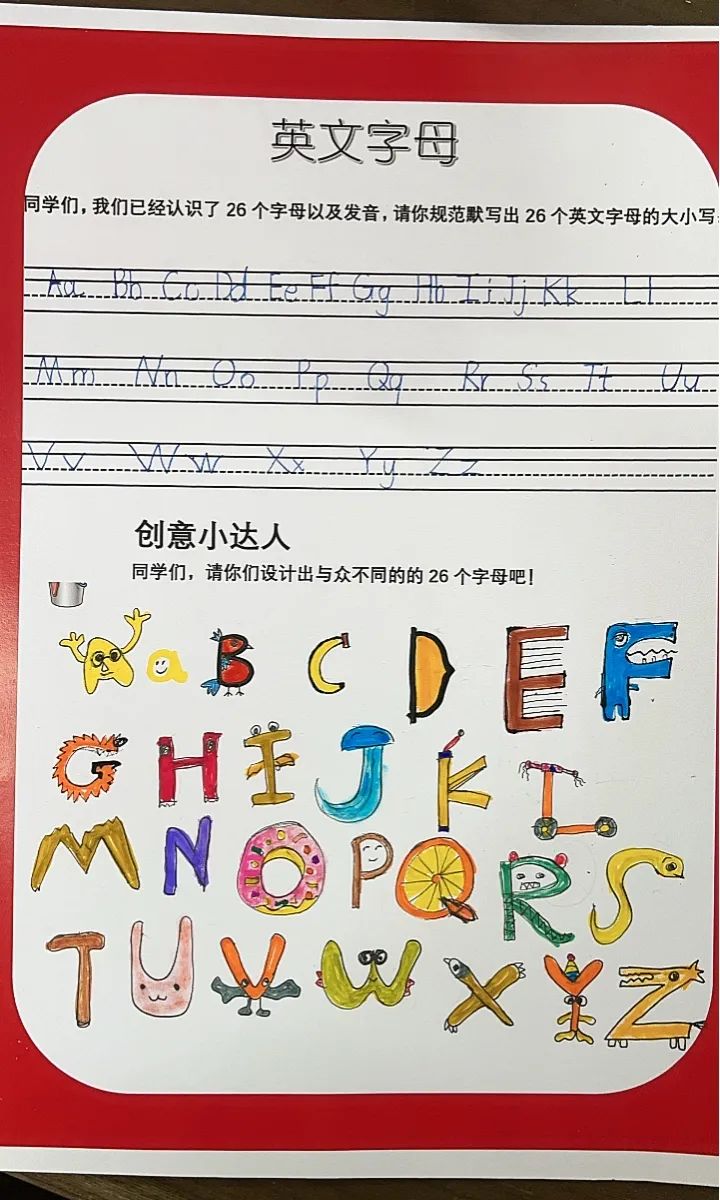 英文字母
同学们，我们已经认识了 26 个字母以及发音，请你规范默写出 26 个英文字母的大小写
Aa Bb Cc Dd Ee Ff Gg Hh Ii Jj Kk Ll
Mm Nn Oo Pp Qq Rr Ss Tt Uu
Vv Ww Xx Yy Zz
创意小达人
同学们，请你们设计出与众不同的的 26 个字母吧！
A a B C D E F
G H I J K L
M N O P Q R S
T U V W X Y Z